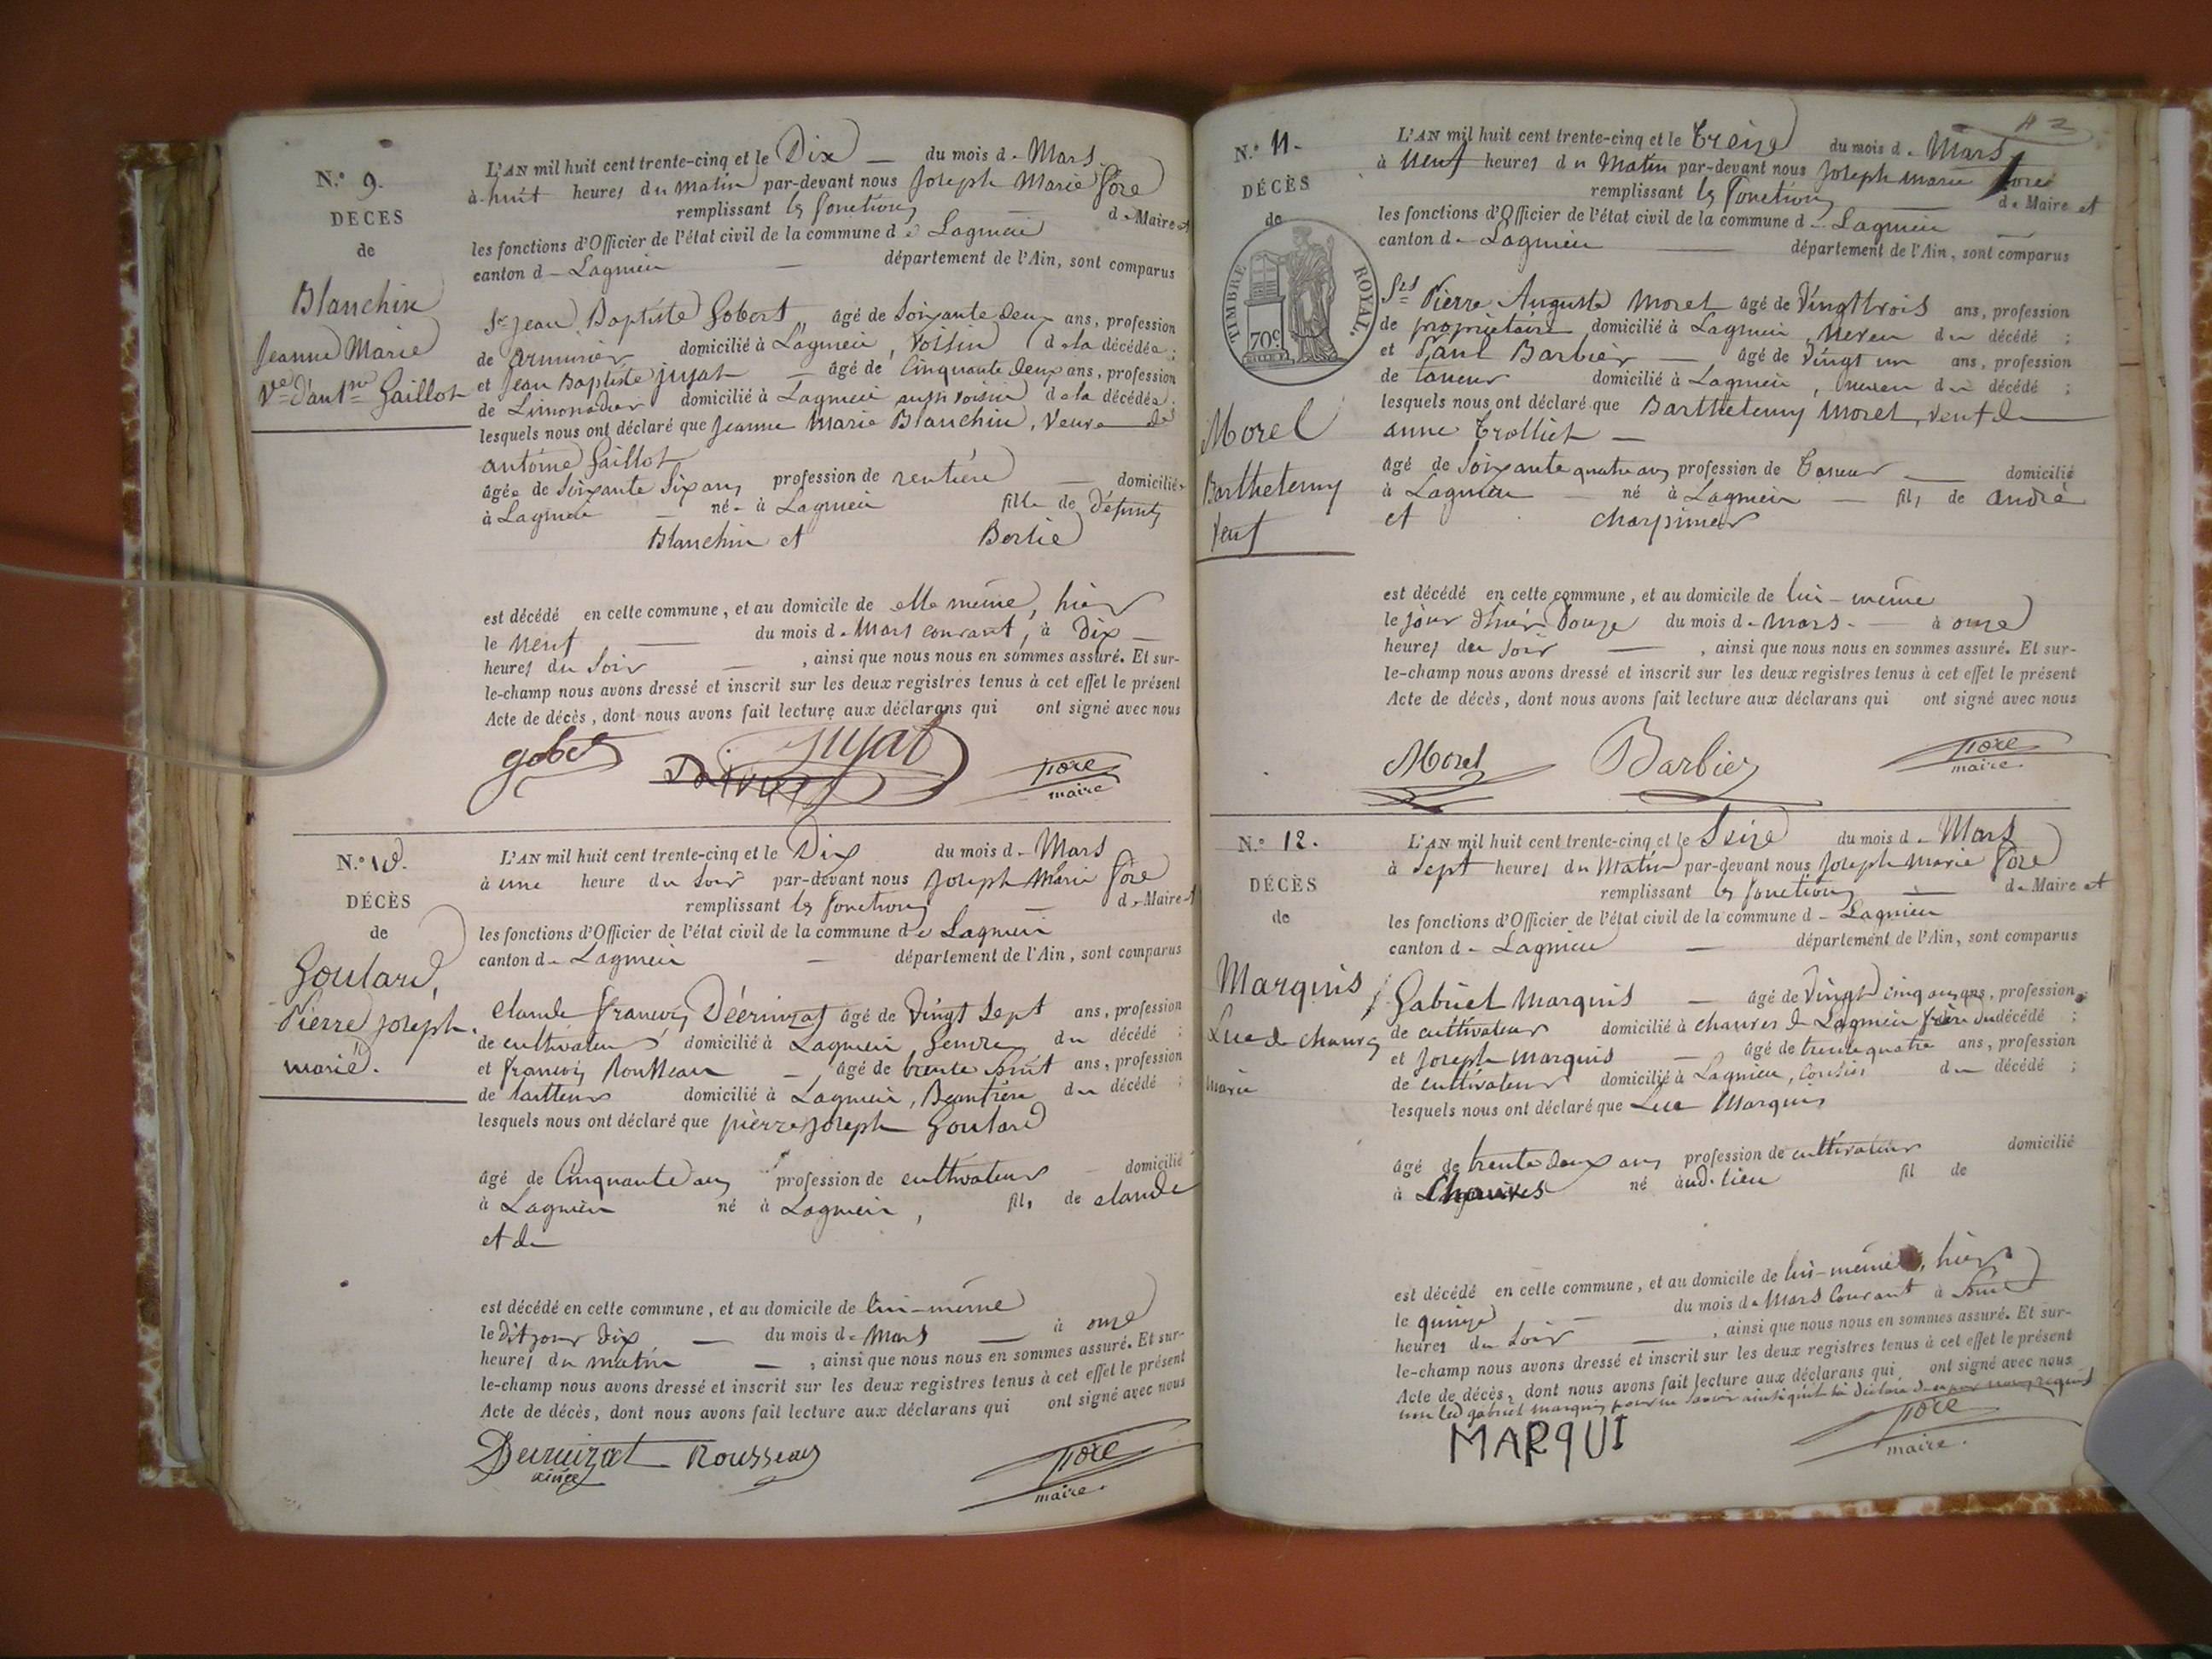 N.º 9.
DECES
de
Blanchin
Jeanne Marie
Vᵉ d'antⁿᵉ Gaillot
L'AN mil huit cent trente-cinq et le Dix — du mois d. Mars
à huit heures du matin par-devant nous Joseph Marie Pore
remplissant les fonctions — d. Maire et
les fonctions d'Officier de l'état civil de la commune de Lagnieu
canton d. Lagnieu — département de l'Ain, sont comparus
Sr Jean Baptiste Gobert, âgé de Soixante deux ans, profession
de armurier domicilié à Lagnieu, Voisin de la décédée ;
et Jean Baptiste jujat — âgé de Cinquante deux ans, profession
de Limonadier domicilié à Lagnieu aussi voisin de la décédée ;
lesquels nous ont déclaré que Jeanne Marie Blanchin, Veuve de
antoine Gaillot
âgée de Soixante Six ans profession de rentière — domiciliée
à Lagnieu — né. à Lagnieu fille de défunts
Blanchin et Bertié
est décédé en cette commune, et au domicile de elle même, hier
le neuf — du mois d. Mars courant, à Dix —
heures du Soir — , ainsi que nous nous en sommes assuré. Et sur-
le-champ nous avons dressé et inscrit sur les deux registres tenus à cet effet le présent
Acte de décès, dont nous avons fait lecture aux déclarans qui ont signé avec nous
gobet Jujat pore
maire
N.º 10.
DÉCÈS
de
Goulard,
Pierre joseph
marié.
L'AN mil huit cent trente-cinq et le Dix du mois d. Mars
à une heure du Soir par-devant nous Joseph Marie Pore
remplissant les fonctions — d. Maire et
les fonctions d'Officier de l'état civil de la commune de Lagnieu
canton d. Lagnieu — département de l'Ain, sont comparus
Claude françois âgé de Vingt Sept ans, profession
de cultivateur domicilié à Lagnieu Gendre du décédé ;
et françois Rousseau — âgé de trente huit ans, profession
de tailleur domicilié à Lagnieu, Beaufrère du décédé ;
lesquels nous ont déclaré que pierre joseph Goulard
âgé de Cinquante ans profession de cultivateur — domicilié
à Lagnieu né à Lagnieu, fils de claude
et de
est décédé en cette commune, et au domicile de lui-même
le dit jour dix — du mois d. Mars — à onze
heures du matin — , ainsi que nous nous en sommes assuré. Et sur-
le-champ nous avons dressé et inscrit sur les deux registres tenus à cet effet le présent
Acte de décès, dont nous avons fait lecture aux déclarans qui ont signé avec nous
Rousseau pore
maire.
N.º 11.
DÉCÈS
de
TIMBRE ROYAL.
70c
Morel
Barthelemy
Veuf
L'AN mil huit cent trente-cinq et le treize du mois d. Mars
à neuf heures du matin par-devant nous Joseph marie pore
remplissant les fonctions — d. Maire et
les fonctions d'Officier de l'état civil de la commune d. Lagnieu —
canton d. Lagnieu — département de l'Ain, sont comparus
Srs Pierre Auguste Morel âgé de Vingt trois ans, profession
de propriétaire domicilié à Lagnieu, Neveu du décédé ;
et Paul Barbier — âgé de Vingt un ans, profession
de taneur domicilié à Lagnieu, neveu du décédé ;
lesquels nous ont déclaré que Barthelemy Morel, Veuf de
anne trolliet —
âgé de Soixante quatre ans profession de taneur — domicilié
à Lagnieu — né à Lagnieu — fils de andré
et
est décédé en cette commune, et au domicile de lui-même
le jour d'hier Douze du mois d. mars. — à onze
heures du Soir — , ainsi que nous nous en sommes assuré. Et sur-
le-champ nous avons dressé et inscrit sur les deux registres tenus à cet effet le présent
Acte de décès, dont nous avons fait lecture aux déclarans qui ont signé avec nous
Morel Barbier pore
maire
N.º 12.
DÉCÈS
de
Marquis
Luc de chauves
marié
L'AN mil huit cent trente-cinq et le Seize du mois d. Mars
à Sept heures du Matin par-devant nous Joseph Marie Pore
remplissant les fonctions — d. Maire et
les fonctions d'Officier de l'état civil de la commune d. Lagnieu
canton d. Lagnieu — département de l'Ain, sont comparus
Gabriel Marquis — âgé de Vingt cinq ans, profession
de cultivateur domicilié à chauves de Lagnieu frère du décédé ;
et Joseph Marquis — âgé de trente quatre ans, profession
de cultivateur domicilié à Lagnieu, Cousin du décédé ;
lesquels nous ont déclaré que Luc Marquis
âgé de trente deux ans profession de cultivateur domicilié
à Chauves né aud. lieu fil de
est décédé en cette commune, et au domicile de lui-même, hier
le quinze — du mois d. Mars Courant à huit
heures du Soir — , ainsi que nous nous en sommes assuré. Et sur-
le-champ nous avons dressé et inscrit sur les deux registres tenus à cet effet le présent
Acte de décès, dont nous avons fait lecture aux déclarans qui ont signé avec nous
non led gabriel marquis pour ne savoir ainsi qu'il l'a déclaré de ce par nous requis
MARQUI pore
maire.